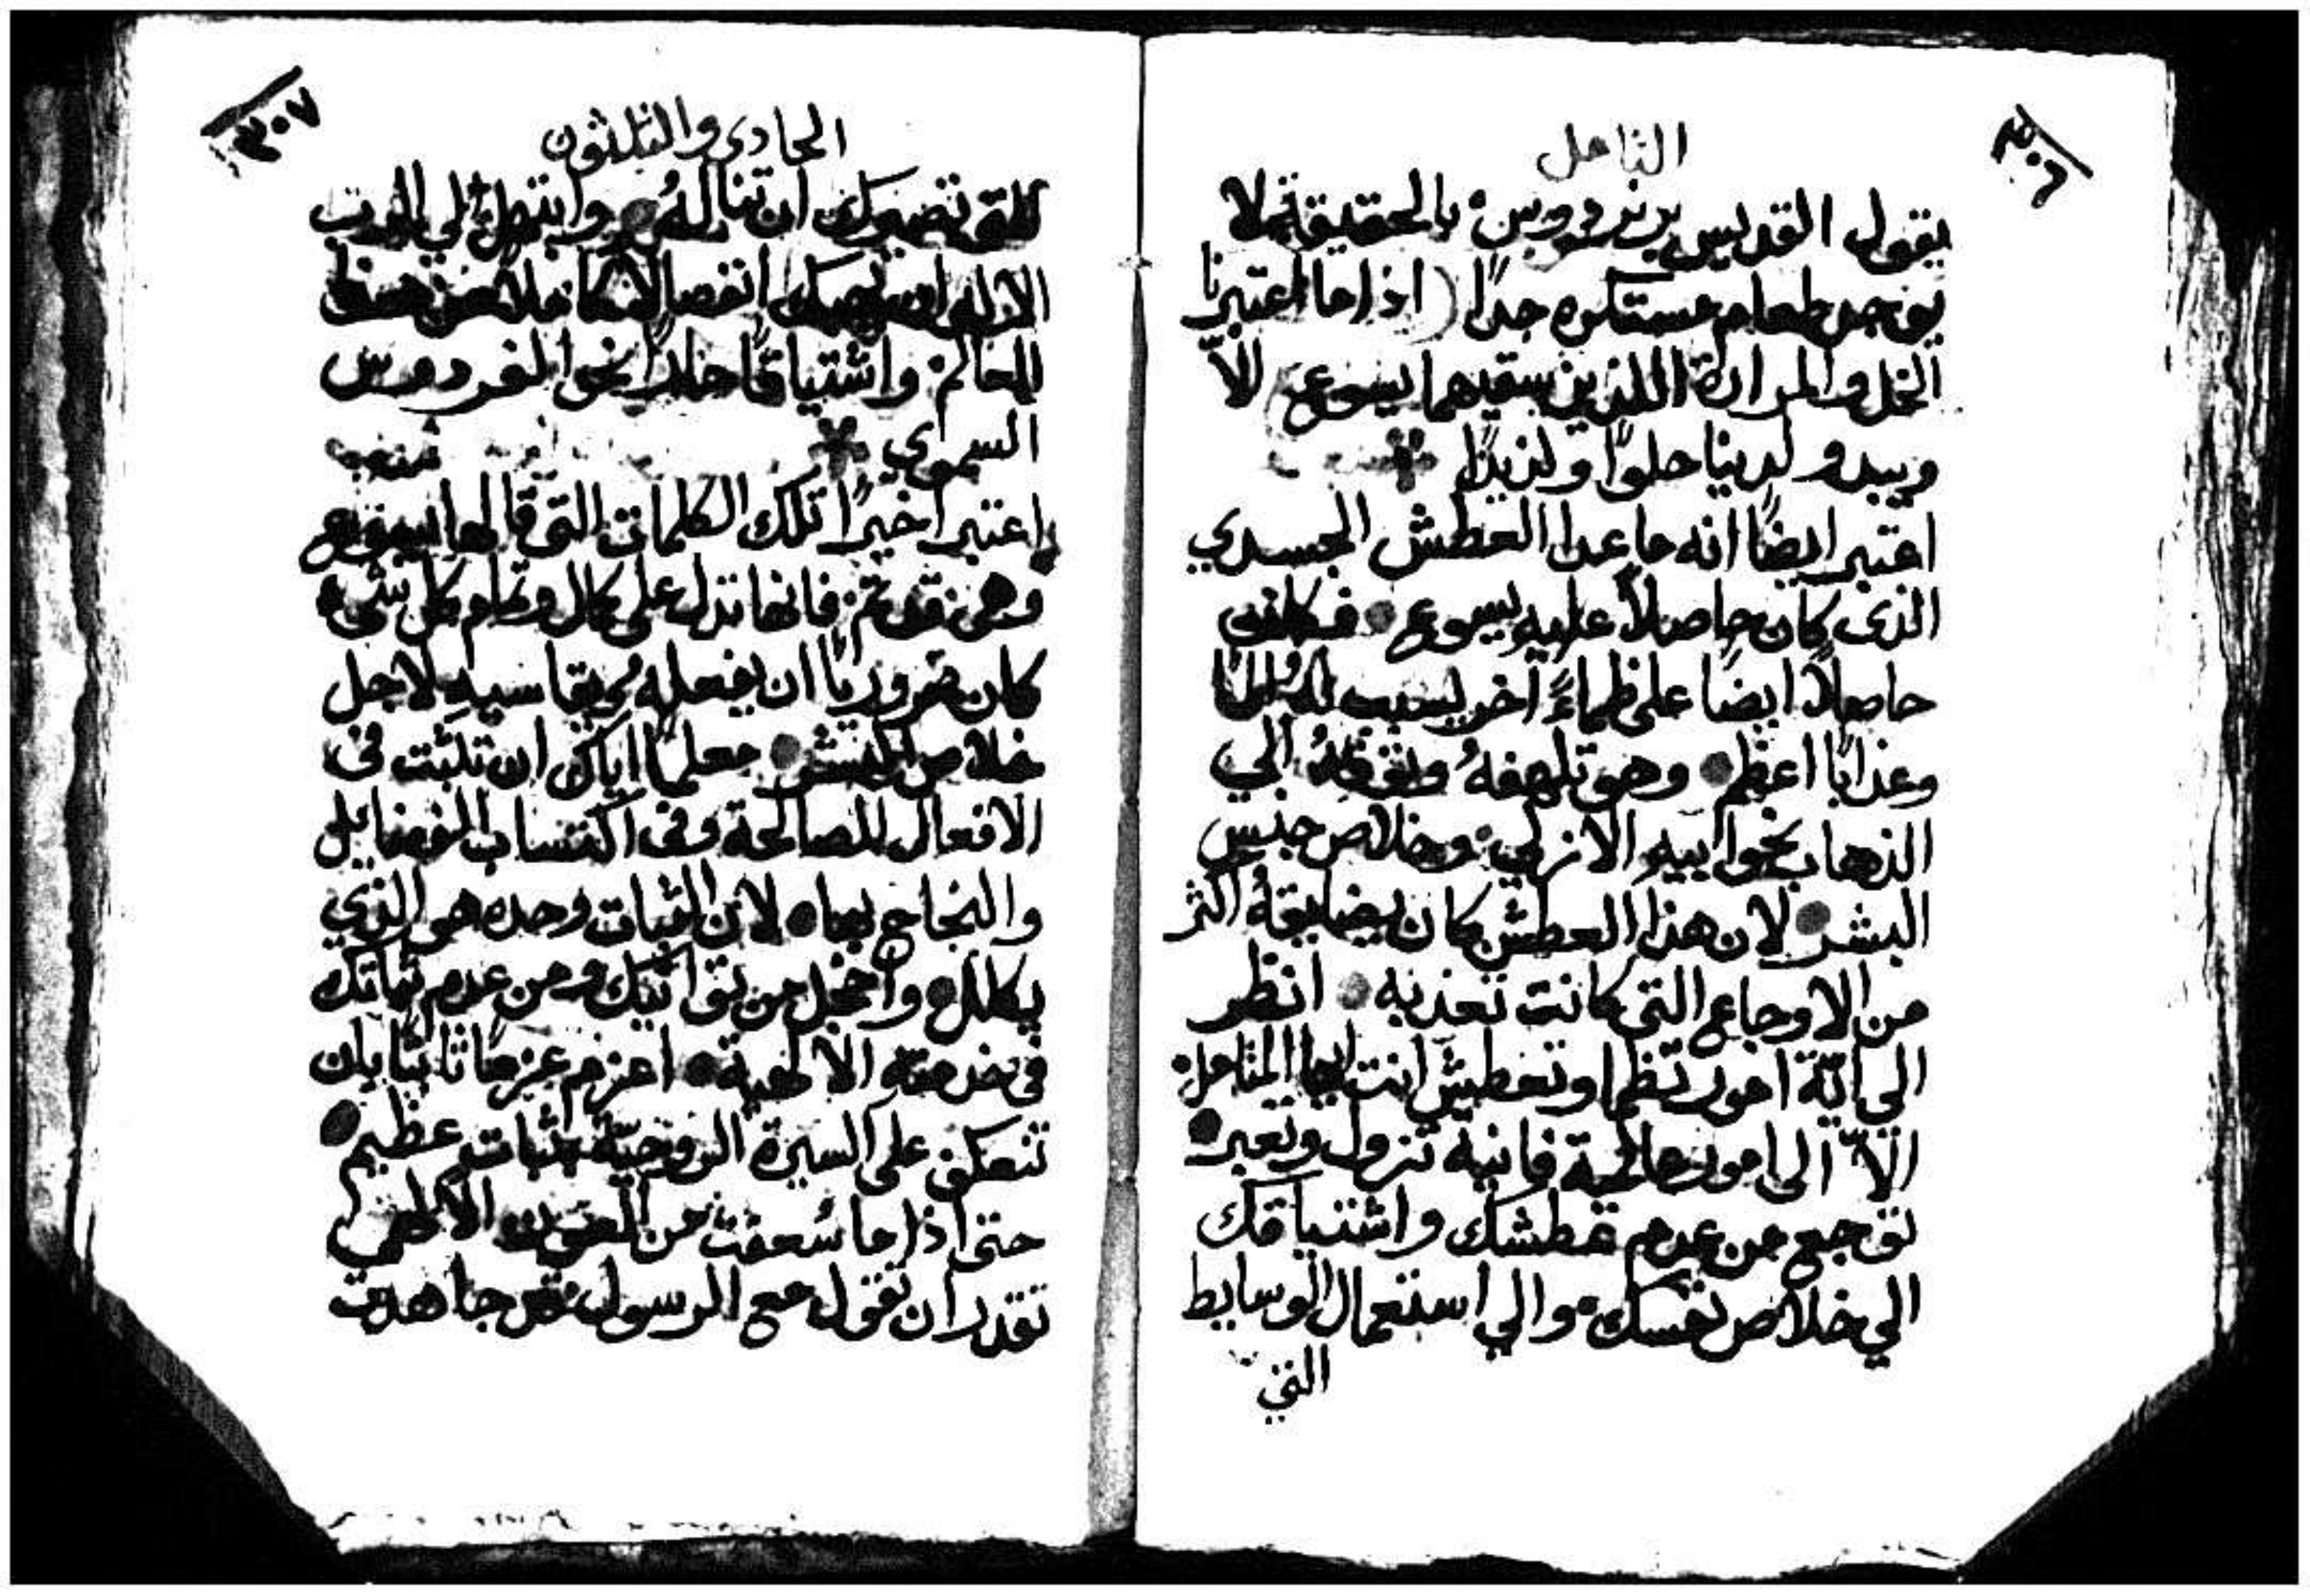 ٣٠٦
التامل
يقول القديس برنردوس بالحقيقة لا
يوجد طعام مستكره جدًا (اذا ما اعتبرنا
الخل والمرارة اللذين سقيهما يسوع) الاّ
ويبدو لدينا حلوًا ولذيذًا
اعتبر ايضًا انه ما عدا العطش الجسدي
الذى كان حاصلاً عليه يسوع فكان
حاصلاً ايضًا على ظماءً اخر يسبب لهُ المًا
وعذابًا اعظم وهو تلهفهُ وتوقهُ الي
الذهاب نحو ابيه الازلي وخلاص جنس
البشر لان هذا العطش كان يضايقهُ اكثر
من الاوجاع التي كانت تعذبه انظر
الى ايّة امور تظما وتعطش انت ايها المتامل
الاّ الى امور عالمية فانية تزول وتعبر
توجع من عدم عطشك واشتياقك
الي خلاص نفسك والي استعمال الوسايط
التي
٣٠٧
الحادي والثلثون
التى تصيرك ان تنالهُ وابتهل الي الرب
الاله ان يهبك انفصالاً كاملاً من هذا
العالم واشتياقًا حارًا نحو الفردوس
السموي
اعتبر اخيرًا تلك الكلمات التى قالها يسوع
وهى قد تم فانها تدل على كمال وتمام كل شيء
كان ضروريًا ان يفعلهُ ويقاسيه لاجل
خلاص البشر معلمًا اياك ان تثبت فى
الافعال الصالحة وفى اكتساب الفضايل
والنجاح بها لان الثبات وحده هو الذي
يكلل واخجل من توانيك ومن عدم ثباتك
فى خدمته الالهية اعزم عزمًا ثابتًا بان
تتعكف على السيرة الروحيّة بثبات عظيم
حتى اذا ما سُعفت من العون الالهي
تقدر ان تقول مع الرسول قد جاهدت